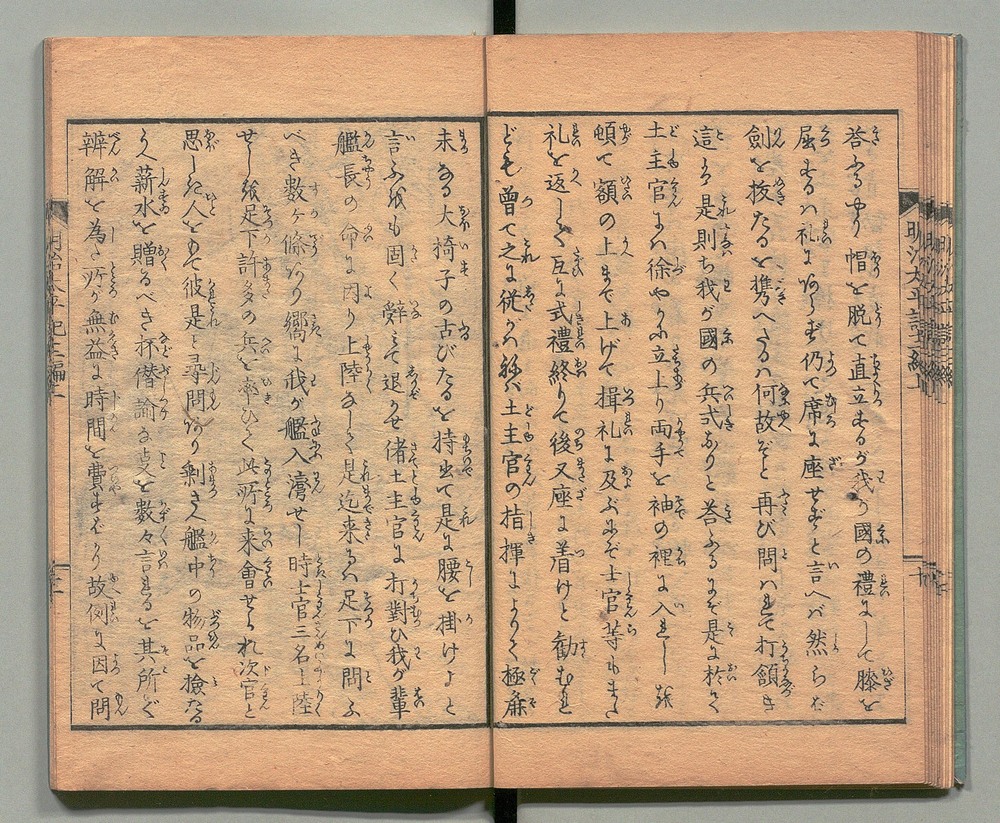 答ふるやう帽を脱て直立するが我が國の禮にして膝を
屈するハ礼にあらず仍て席に座せずと言へバ然らば
劍を抜たるを携へたるハ何故ぞと再び問ハれて打頷き
這ハ是則ち我が國の兵式なりと答ふるにぞ是に於て
土主官にハ徐やかに立上り両手を袖の裡に入れし儘
頓て額の上まで上げて揖礼に及ぶにぞ士官等もまた
礼を返して互に式禮終りて後又座に着けと勸むれ
ども曽て之に從がハねバ土主官の指揮によりて極麁
末なる大椅子の古びたるを持出て是に腰を掛けよと
言ふ儘も固く辞て退かせ偖土主官に打對ひ我が輩
艦長の命に因り上陸なして是迄来るハ足下に問ふ
べき数ヶ條あり嚮に我が艦入灣せし時士官三名上陸
せし儘足下許多の兵を率ひて此所に来會せられ次官と
思しき人をもて彼是と尋問あり剰さへ艦中の物品を撿たる
うへ薪水を贈るべき抔僭論なることを数々言れるを其所で
辨解を為す所が無益に時間を費すばかり故例に因て問
明治太平記十一編ノ一